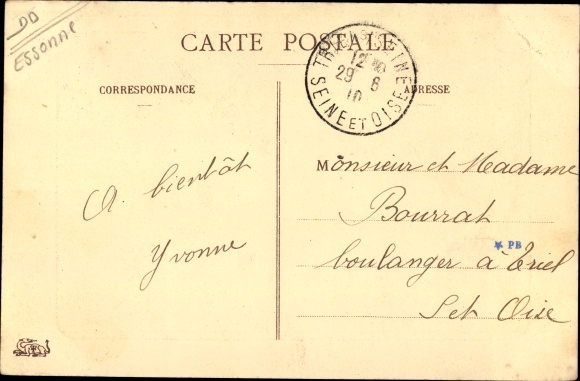 DD
Essonne
CARTE POSTALE
TRIEL S SEINE
12
29 6
10
SEINE ET OISE
CORRESPONDANCE
ADRESSE
A bientôt
Yvonne
Monsieur et Madame
Bourrat
boulanger à Triel
PB
S et Oise